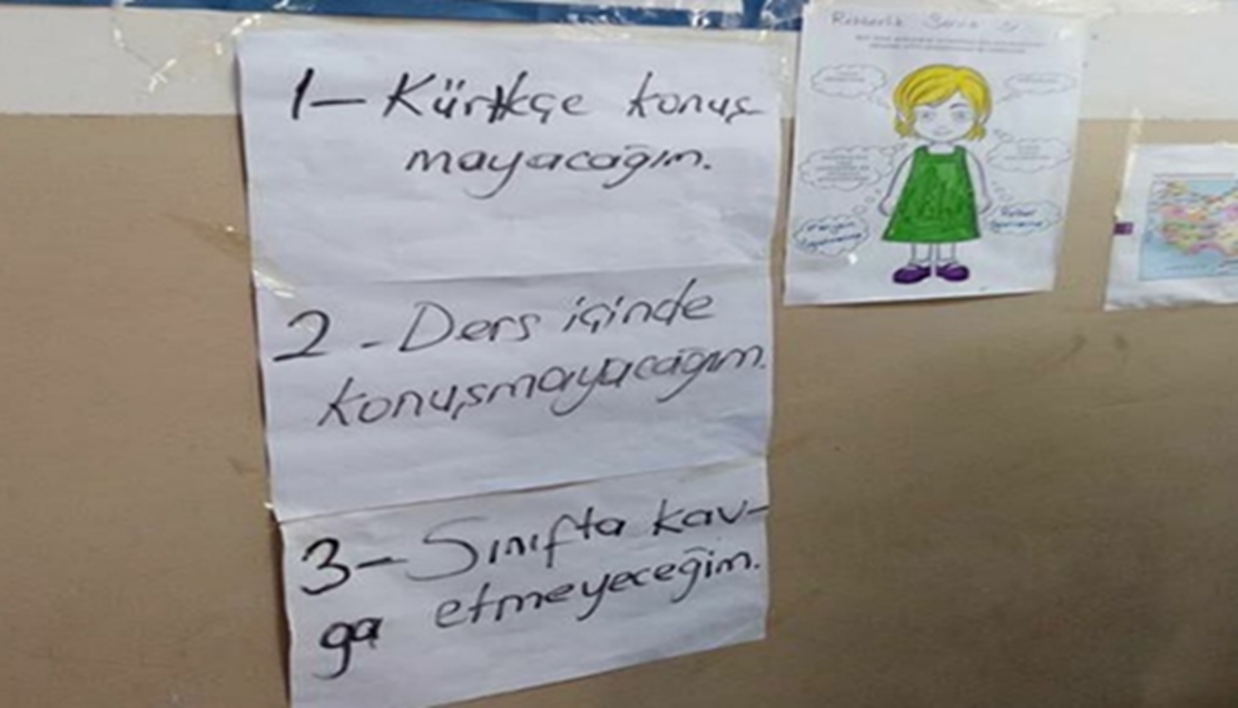 1- Kürtkçe konuş-
mayacağım.
2 - Ders içinde
konuşmayacağım.
3- Sınıfta kav-
ga etmeyeceğim.